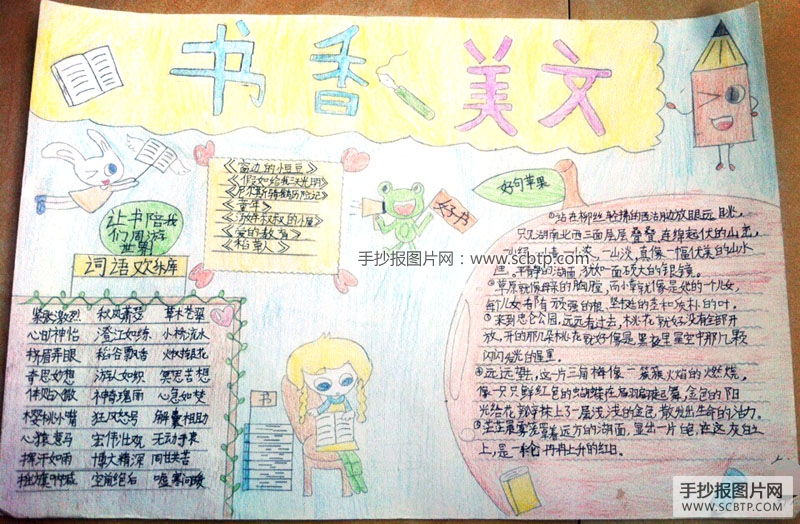 书香美文
《窗边的小豆豆》
《假如给我三天光明》
《尼尔斯骑鹅历险记》
《童年》
《汤姆叔叔的小屋》
《爱的教育》
《稻草人》
好书
让书陪我
们周游
世界
词语欢乐库
紧张激烈 秋风萧瑟 草木苍翠
心旷神怡 澄江如练 小桥流水
挤眉弄眼 稻谷飘香 火树银花
奇思妙想 游人如织 冥思苦想
体贴入微 神奇瑰丽
樱桃小嘴 狂风怒号 解囊相助
心猿意马 宏伟壮观 无动于衷
挥汗如雨 博大精深
空前绝后 嘘寒问暖
书
好句苹果
①站在柳丝轻拂的西湖边放眼远眺,
只见湖南北西三面层层叠叠、连绵起伏的山峦,
一山绿、一山青、一山浓、一山淡,真像一幅优美的山水
画。平静的湖面,犹如一面硕大的银镜。
②草原就像母亲的胸膛,而小草就像是她的一个儿女,
每个儿女都有顽强的根、坚挺的茎和质朴的叶。
③来到忠仑公园,远远看过去,桃花就好没有全部开
放,开的那几朵桃花就好像是黑夜里星空中那几颗
闪闪发光的星星。
④远远望去,这一片三角梅像一簇簇火焰的燃烧,
像一只只鲜红色的蝴蝶在翩翩起舞,金色的阳
光给花瓣抹上了一层浅浅的金色,散发出生命的活力。
远方的湖面,显出一片白色,在这灰白之
上,是一轮冉冉上升的红日。
手抄报图片网:www.scbtp.com
手抄报图片网
WWW.SCBTP.COM